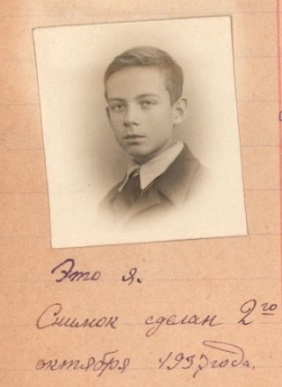 Это я.
Снимок сделан 2го
октября 1937 года.